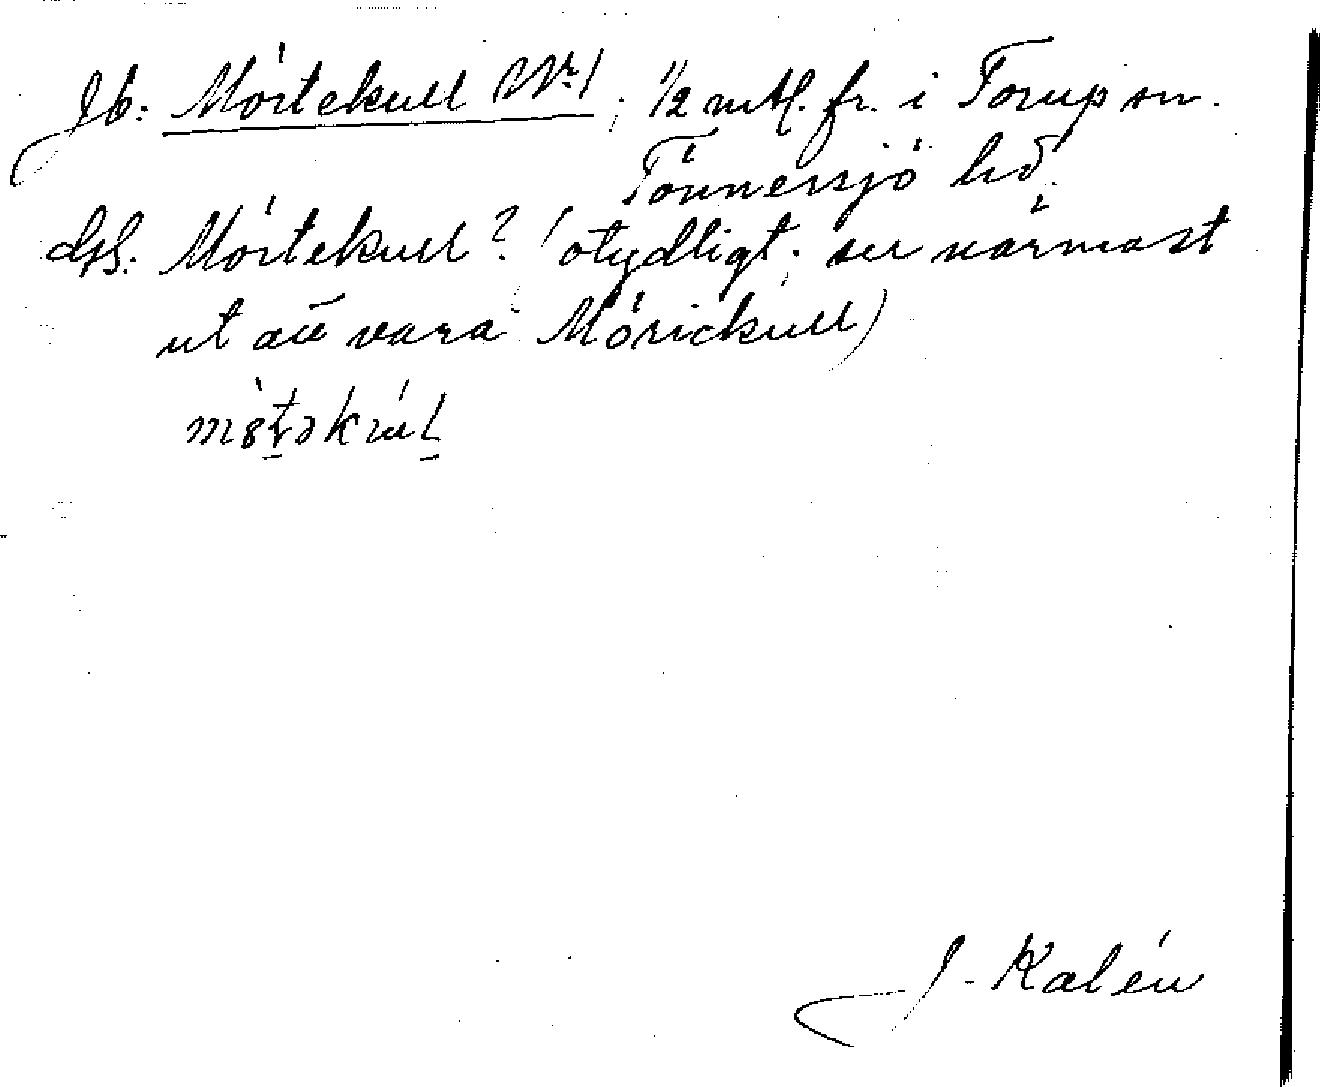 Jb: Mörtekull Nr 1, 1/2 mtl. fr. i Torup sn.
Tönnersjö hd.
GS. Mörtekull? (otydligt; ser närmast
ut att vara Mörickull)
J. Kalén